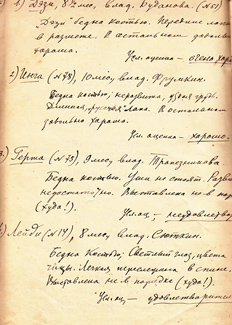 1) Дэзи, 8½ мес, влад. Кудакова. (№51)
"Дэзи" бедна костью. Переднее
в размете. В остальном довольно
хороша.
Усл. оценка – очень хор.
2) Инга (№78), 10 мес, влад. Фрумкин.
Бедна костью, неразвита, узкая грудь.
Длинная, русская лапа. В остальном
довольно хороша.
Усл. оценка – хорошо.
3) Герта (№73) 9 мес, влад. Трапезникова
Бедна костью. Уши не стоят. Развита
недостаточно. Выставлена не в
(худа!).
Усл. оц. – неудовлетвор
4) Леди (№14), 8 мес, влад. Сюткин.
Бедна костью; Светлый глаз, цвета
птицы. Легкая переслежина в спине.
Выставлена не в порядке (худа!).
Усл. оц. – удовлетворительно